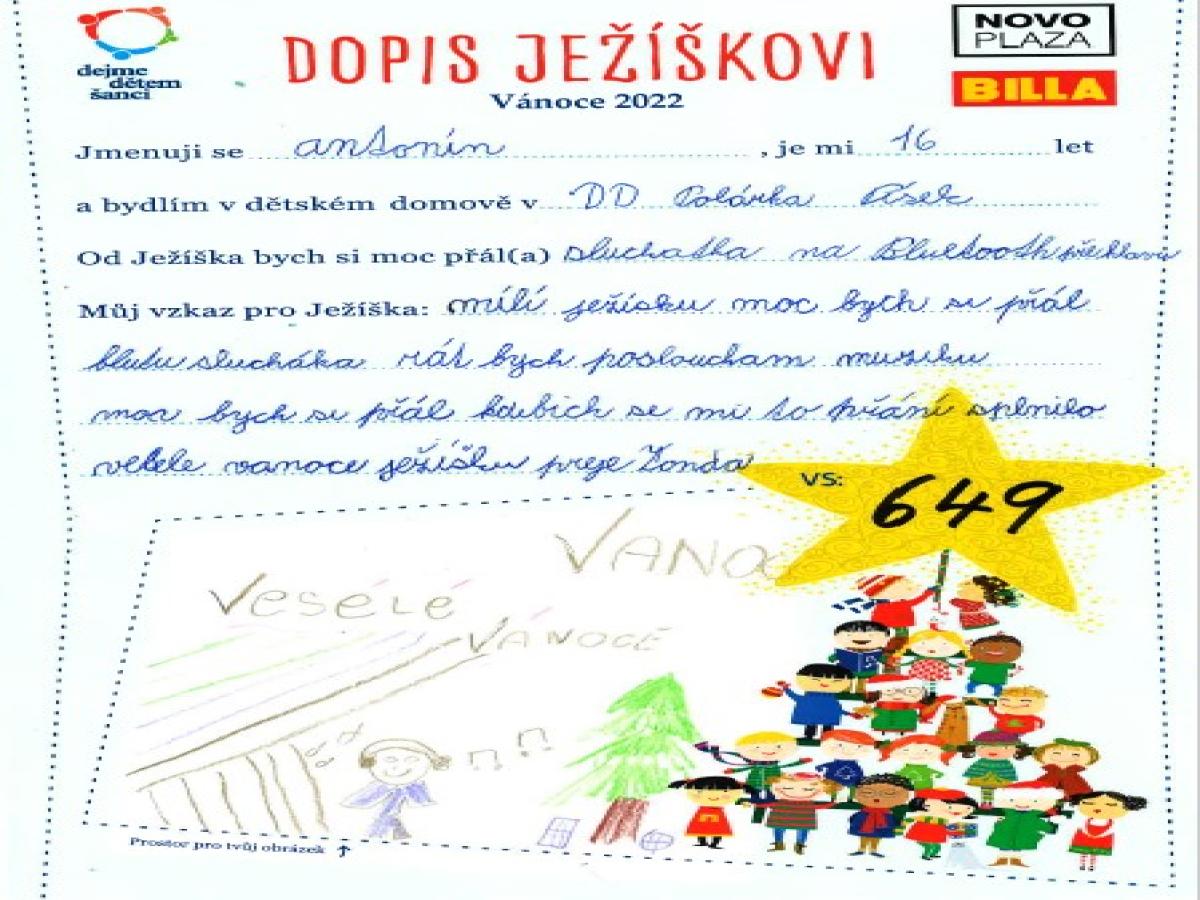 dejme
dětem
šanci
DOPIS JEŽÍŠKOVI
NOVO
PLAZA
BILLA
Vánoce 2022
Jmenuji se antonín, je mi 16 let
a bydlím v dětském domově v DD Písek
Od Ježíška bych si moc přál(a) sluchatka na Bluetooth přes hlavu
Můj vzkaz pro Ježíška: mílí ježísku moc bych si přál
blutu slucháka rát bych posloucham muziku
moc bych si přál kdibich se mi to přání splnilo
velele vanoce ježíšku preje Tonda
VS: 649
VANOC
VESÉLÉ
VÁNOCE
Prostor pro tvůj obrázek ↑